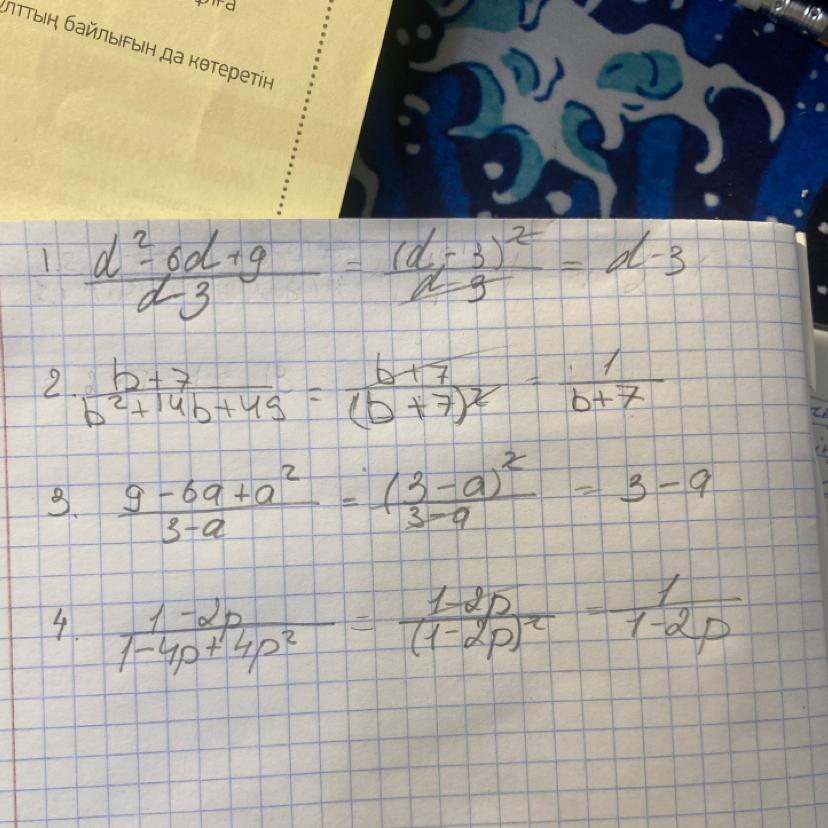 ұлттың байлығын да көтеретін
1. d²-6d+9/d-3 = (d-3)²/d-3 = d-3
2. b+7/b²+14b+49 = b+7/(b+7)² = 1/b+7
3. 9-6a+a²/3-a = (3-a)²/3-a = 3-a
4. 1-2p/1-4p+4p² = 1-2p/(1-2p)² = 1/1-2p